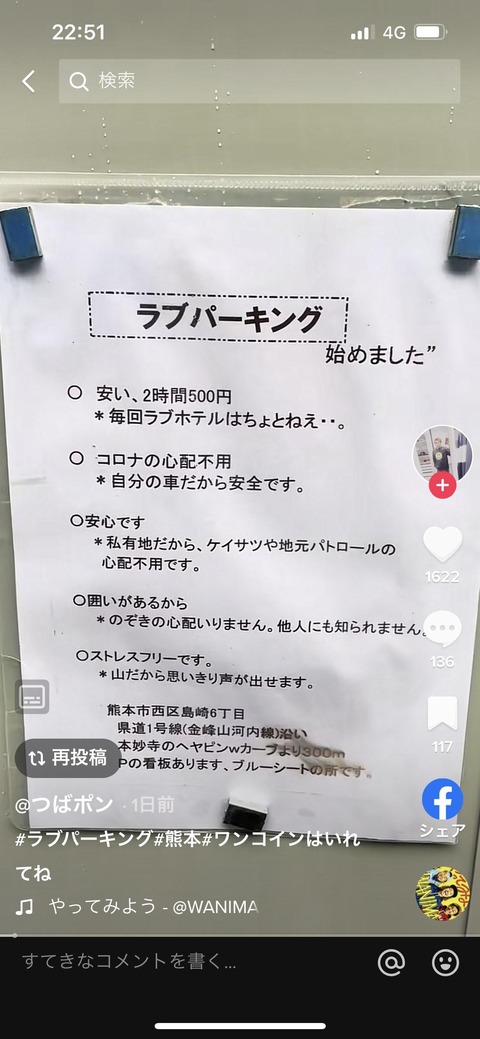 22:51
4G
検索
ラブパーキング
始めました”
○ 安い、2時間500円
＊毎回ラブホテルはちょとねえ・・。
○ コロナの心配不用
＊自分の車だから安全です。
○安心です
＊私有地だから、ケイサツや地元パトロールの
心配不用です。
○囲いがあるから
＊のぞきの心配いりません。他人にも知られません。
○ストレスフリーです。
＊山だから思いきり声が出せます。
熊本市西区島崎6丁目
県道1号線(金峰山河内線)沿い
本妙寺のヘヤピンwカーブより300m
Pの看板あります、ブルーシートの所です。
1622
136
117
シェア
再投稿
@つばポン · 1日前
#ラブパーキング#熊本#ワンコインはいれ
てね
やってみよう - @WANIMA
すてきなコメントを書く...